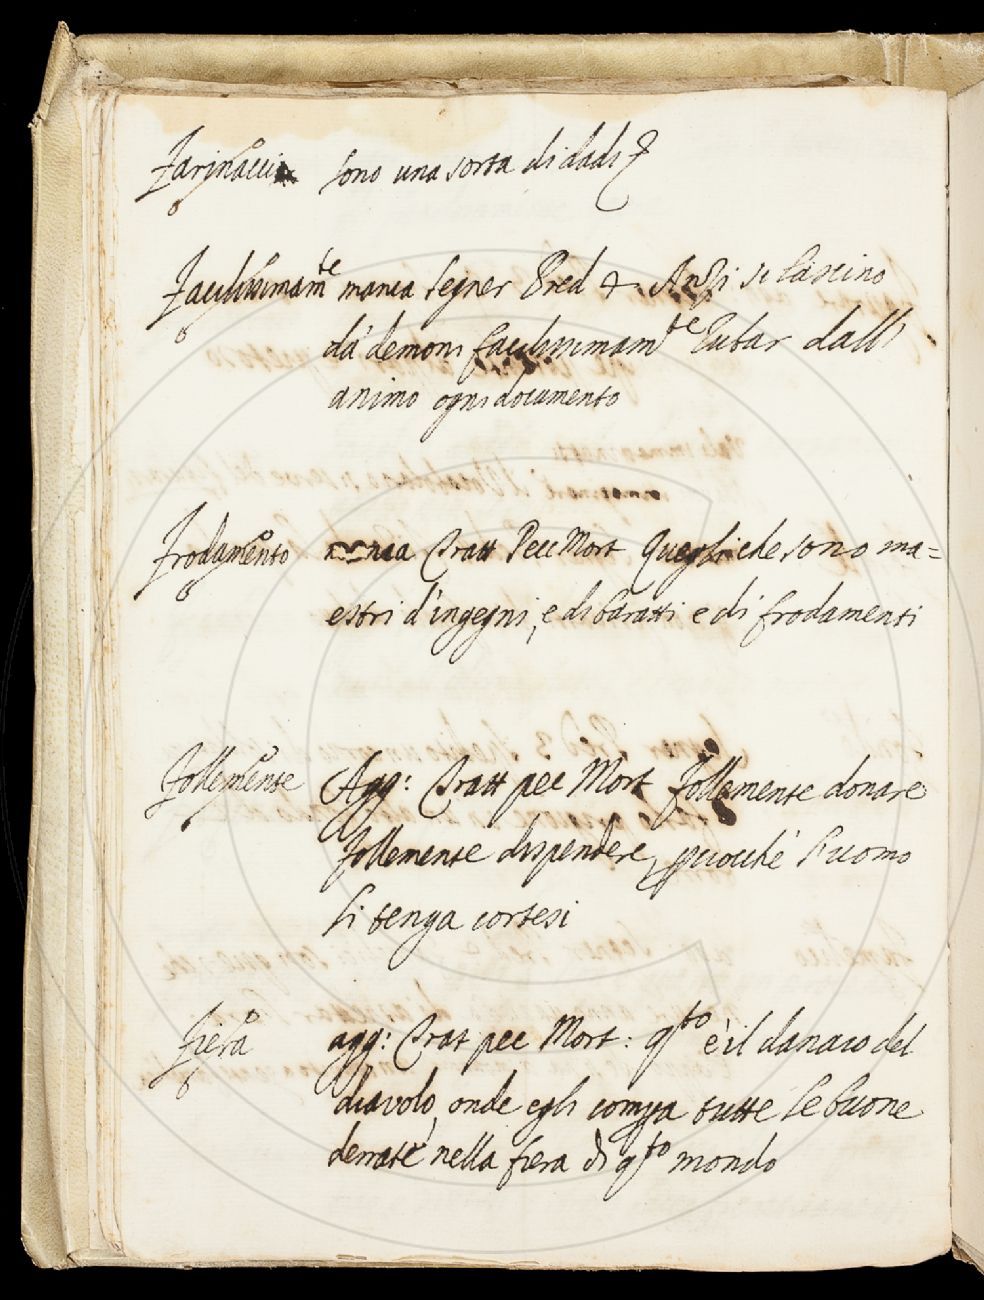 Farinacci sono una sorta di dadi
Facilissimam^te manca Segner Pred Anzi si lascino
da' demoni facilissimam^te rubar dall
animo ogni documento
Frodamento manca Tratt Pecc Mort Quegli che sono ma=
estri d'ingegni, e di baratti e di frodamenti
Follemente Agg: Tratt pec Mort Follemente donare
follemente dispendere, perciocchè l'uomo
li tenga cortesi
Fiera agg: Trat pec Mort: q^sto è il danaro del
diavolo, onde egli compra tutte le buone
derrate nella fiera di q^sto mondo